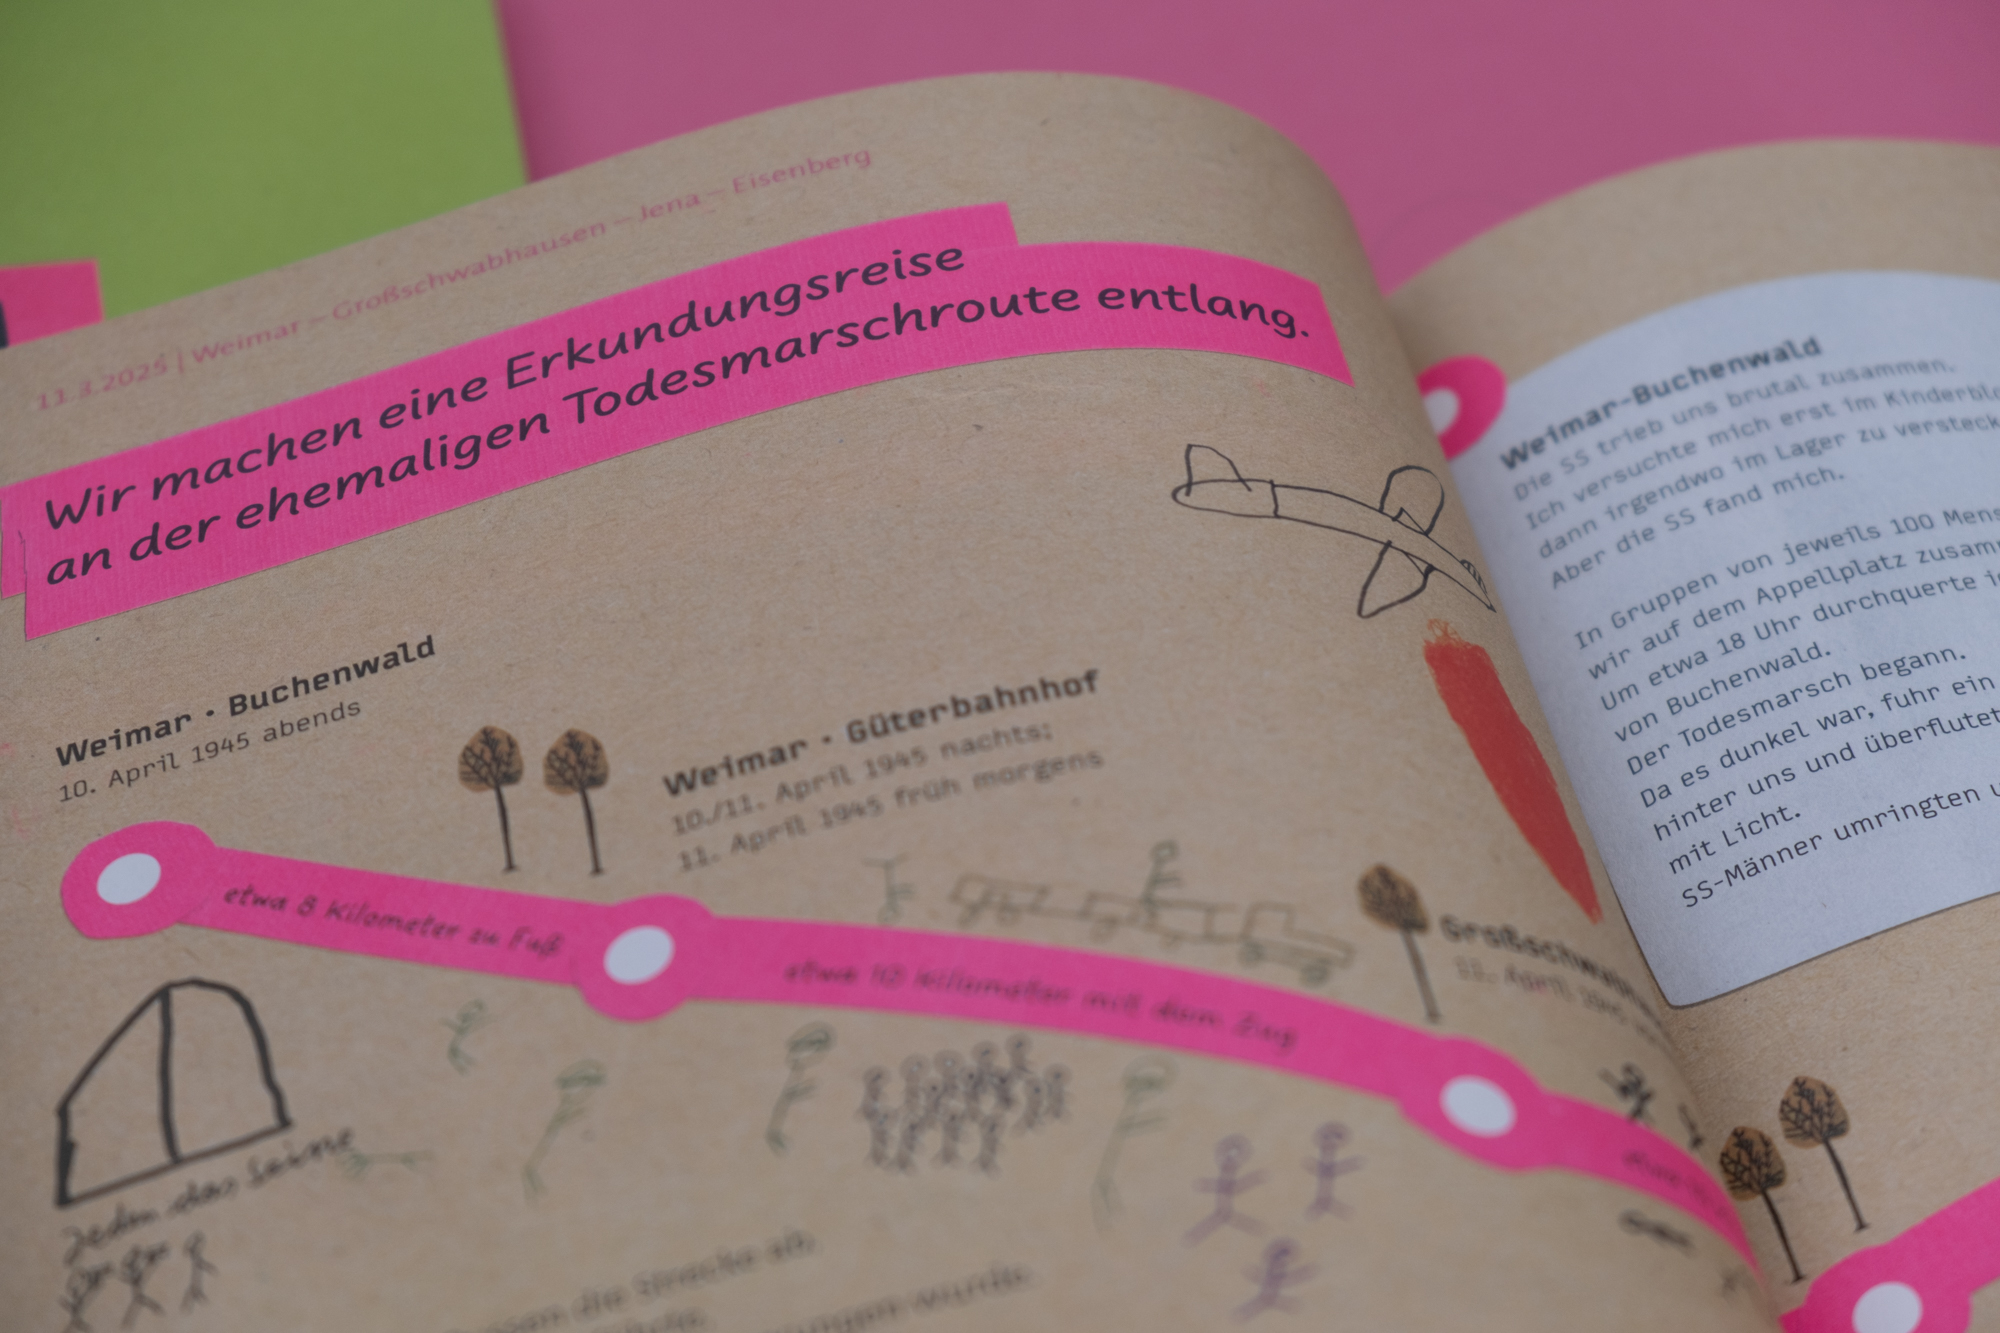 11.3.2025 | Weimar – Großschwabhausen – Jena – Eisenberg
Wir machen eine Erkundungsreise
an der ehemaligen Todesmarschroute entlang.
Weimar · Buchenwald
10. April 1945 abends
Weimar · Güterbahnhof
10./11. April 1945 nachts;
11. April 1945 früh morgens
etwa 8 Kilometer zu Fuß
etwa 10 Kilometer mit dem Zug
11. April
Jedem das Seine
die Strecke ab.
wurde.
Weimar-Buchenwald
Die SS trieb uns brutal zusammen.
Ich versuchte mich erst im
dann irgendwo im Lager zu
Aber die SS fand mich.
In Gruppen von jeweils 100
wir auf dem Appellplatz
Um etwa 18 Uhr durchquerte
von Buchenwald.
Der Todesmarsch begann.
Da es dunkel war, fuhr ein
hinter uns und
mit Licht.
SS-Männer umringten